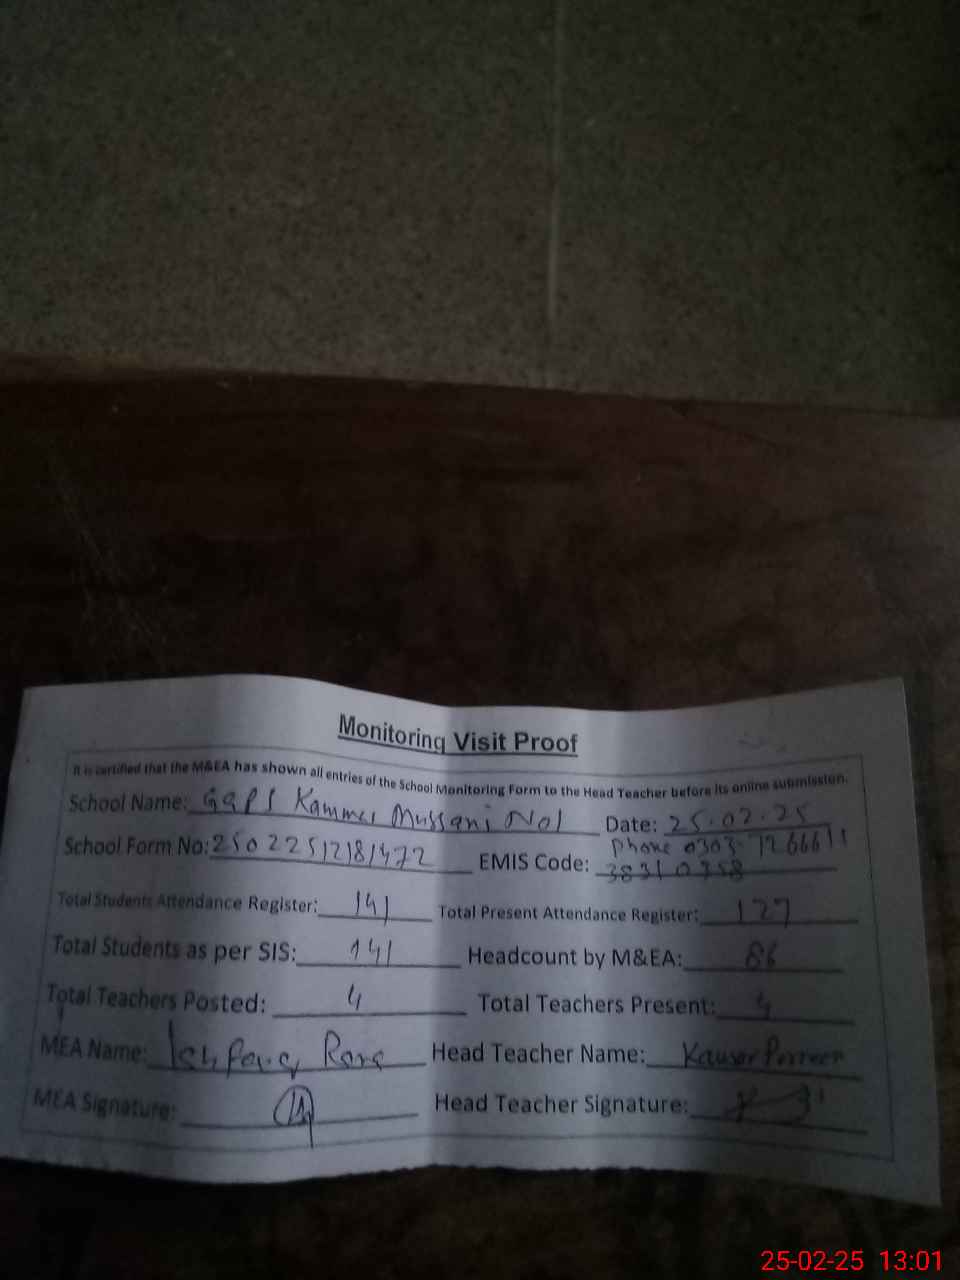 Monitoring Visit Proof
It is certified that the M&EA has shown all entries of the School Monitoring Form to the Head Teacher before its online submission.
School Name: GGPS Kammar Mussani No1 Date: 25.02.25
Phone 0303-7266611
School Form No: 25022512181472 EMIS Code: 38310358
Total Students Attendance Register: 141 Total Present Attendance Register: 127
Total Students as per SIS: 141 Headcount by M&EA: 86
Total Teachers Posted: 4 Total Teachers Present: 4
MEA Name: Ishfaq Rana Head Teacher Name: Kausar Perveen
MEA Signature: Head Teacher Signature:
25-02-25 13:01